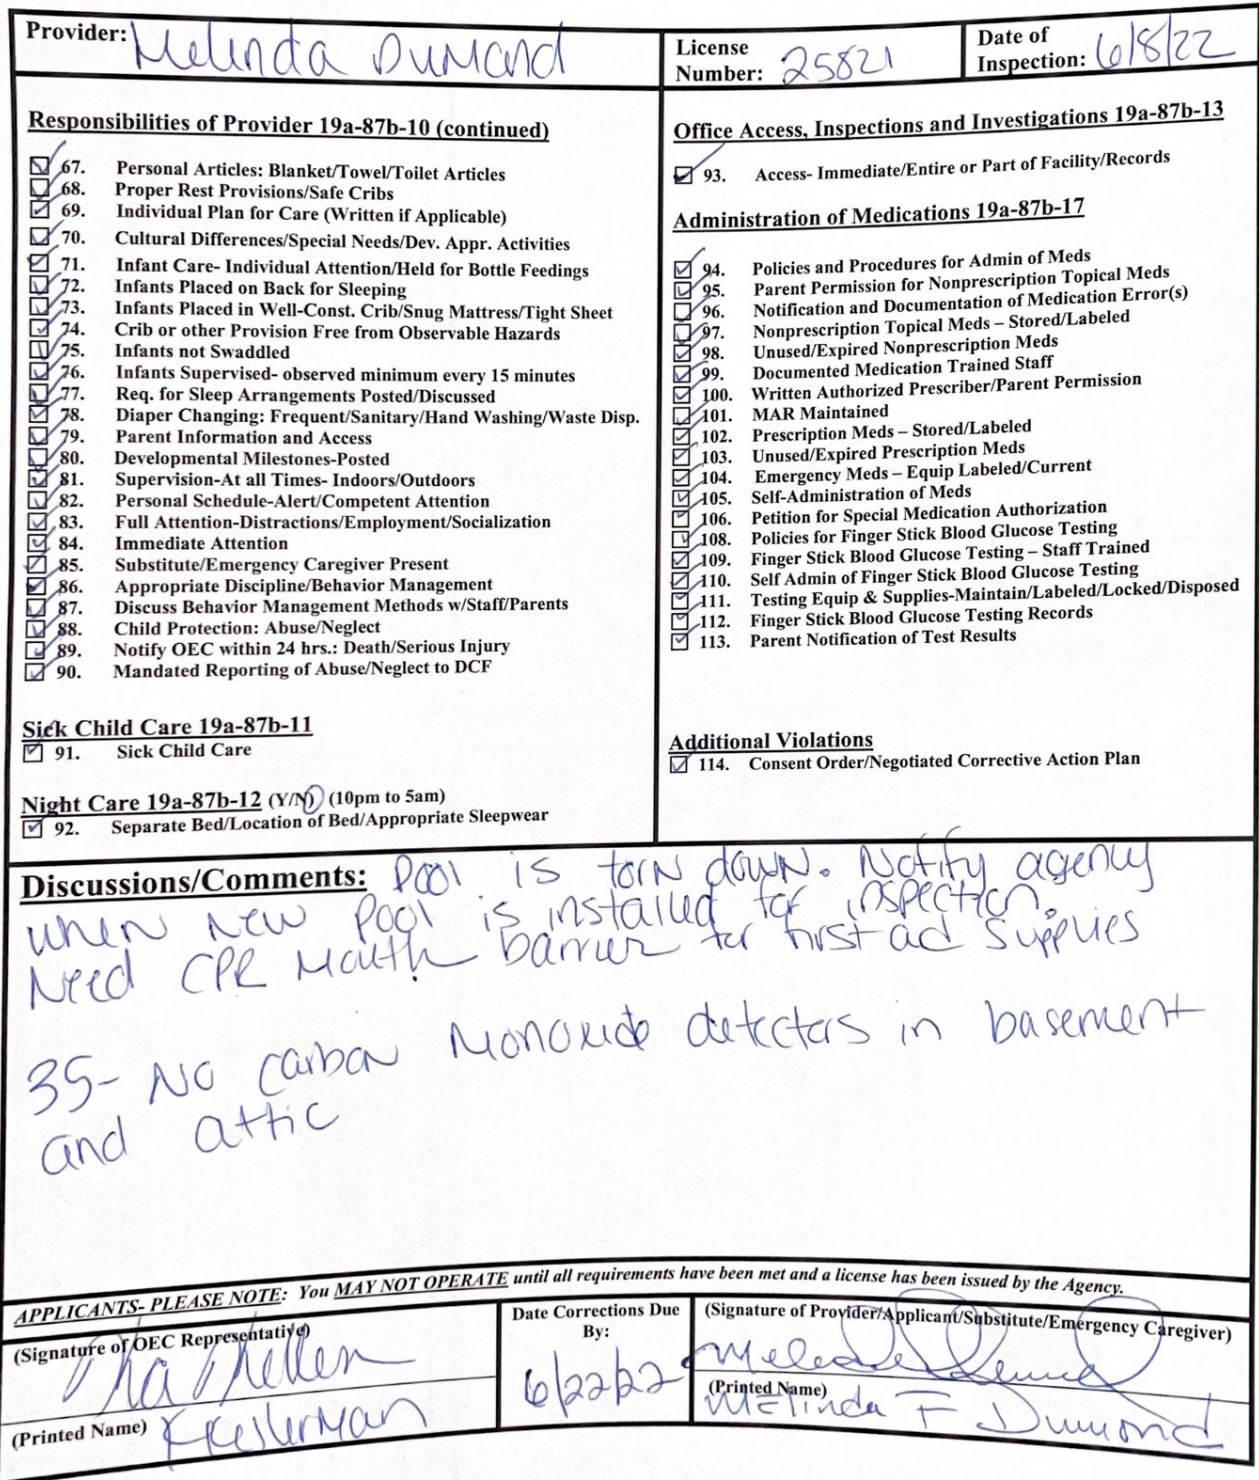 Provider: Melinda Dumond
License Number: 25821
Date of Inspection: 6/8/22
Responsibilities of Provider 19a-87b-10 (continued)
67. Personal Articles: Blanket/Towel/Toilet Articles
68. Proper Rest Provisions/Safe Cribs
69. Individual Plan for Care (Written if Applicable)
70. Cultural Differences/Special Needs/Dev. Appr. Activities
71. Infant Care- Individual Attention/Held for Bottle Feedings
72. Infants Placed on Back for Sleeping
73. Infants Placed in Well-Const. Crib/Snug Mattress/Tight Sheet
74. Crib or other Provision Free from Observable Hazards
75. Infants not Swaddled
76. Infants Supervised- observed minimum every 15 minutes
77. Req. for Sleep Arrangements Posted/Discussed
78. Diaper Changing: Frequent/Sanitary/Hand Washing/Waste Disp.
79. Parent Information and Access
80. Developmental Milestones-Posted
81. Supervision-At all Times- Indoors/Outdoors
82. Personal Schedule-Alert/Competent Attention
83. Full Attention-Distractions/Employment/Socialization
84. Immediate Attention
85. Substitute/Emergency Caregiver Present
86. Appropriate Discipline/Behavior Management
87. Discuss Behavior Management Methods w/Staff/Parents
88. Child Protection: Abuse/Neglect
89. Notify OEC within 24 hrs.: Death/Serious Injury
90. Mandated Reporting of Abuse/Neglect to DCF
Sick Child Care 19a-87b-11
91. Sick Child Care
Night Care 19a-87b-12 (Y/N) (10pm to 5am)
92. Separate Bed/Location of Bed/Appropriate Sleepwear
Office Access, Inspections and Investigations 19a-87b-13
93. Access- Immediate/Entire or Part of Facility/Records
Administration of Medications 19a-87b-17
94. Policies and Procedures for Admin of Meds
95. Parent Permission for Nonprescription Topical Meds
96. Notification and Documentation of Medication Error(s)
97. Nonprescription Topical Meds – Stored/Labeled
98. Unused/Expired Nonprescription Meds
99. Documented Medication Trained Staff
100. Written Authorized Prescriber/Parent Permission
101. MAR Maintained
102. Prescription Meds – Stored/Labeled
103. Unused/Expired Prescription Meds
104. Emergency Meds – Equip Labeled/Current
105. Self-Administration of Meds
106. Petition for Special Medication Authorization
108. Policies for Finger Stick Blood Glucose Testing
109. Finger Stick Blood Glucose Testing – Staff Trained
110. Self Admin of Finger Stick Blood Glucose Testing
111. Testing Equip & Supplies-Maintain/Labeled/Locked/Disposed
112. Finger Stick Blood Glucose Testing Records
113. Parent Notification of Test Results
Additional Violations
114. Consent Order/Negotiated Corrective Action Plan
Discussions/Comments: Pool is torn down. Notify agency
when new pool is installed for inspection.
Need CPR Mouth barrier for first aid supplies
35- No carbon Monoxide detectors in basement
and attic
APPLICANTS- PLEASE NOTE: You MAY NOT OPERATE until all requirements have been met and a license has been issued by the Agency.
(Signature of OEC Representative)
(Printed Name)
Date Corrections Due By:
6/22/22
(Signature of Provider/Applicant/Substitute/Emergency Caregiver)
(Printed Name)
Melinda F Dumond